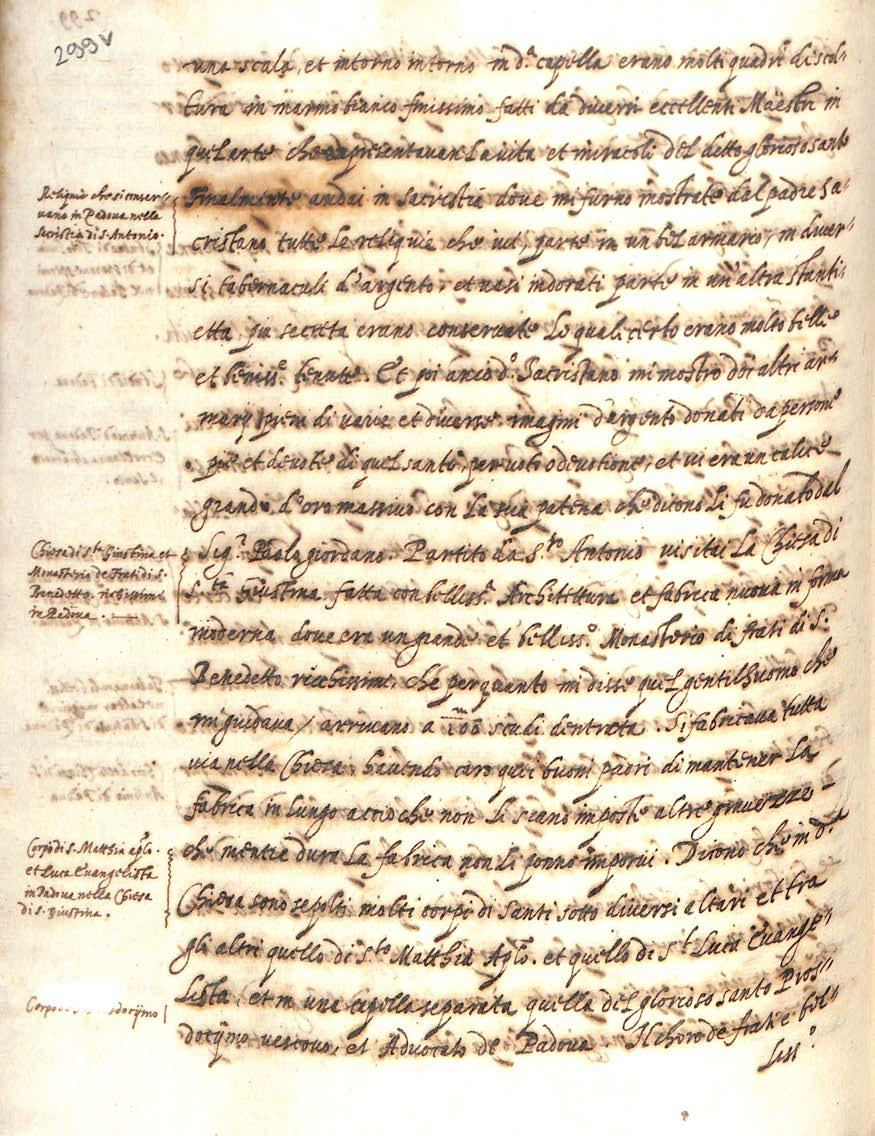 299v
una scala, et intorno intorno in d.ª capella erano molti quadri di scol-
tura in marmo bianco finissimo fatti da diversi eccellenti Maestri in
quel arte che rapresentavan La vita et miracoli del detto glorioso santo
Reliquie che si conser-
vano in Padova nella
Secristia di S. Antonio.
Finalmente andai in sacristia dove mi furno mostrate dal padre Sa-
cristano tutte Le reliquie che ivi, parte in un bel armario, in diver-
si tabernaculi d'argento, et vasi indorati parte in un'altra stanti-
etta piu secreta erano conservate Le quali certo erano molto belle
et beniss.º tenute. Et poi anco d.º Sacristano mi mostro doi altri ar-
marij pieni di varie et diverse imagini d'argento donati da persone
pie et devote di quel santo, per voto o devotione, et vi era un calice
grande d'oro massivo con La sua patena che dicono Li fu donato dal
Chiesa di S.ta Giustina et
Monasterio de frati di S.
Benedetto richissimi
in Padova.
Sig.r Paolo giordano. Partito da S.to Antonio visitai La Chiesa di
S.ta Giustina fatta con belliss.ª Architettura et fabrica nuova in forma
moderna dove era un grande et belliss.º Monasterio di frati di S.
Benedetto ricchissimi, che per quanto mi disse quel gentilhuomo che
mi guidava, arrivano a 100 m scudi dentrata. Si fabricava tutta
via nella Chiesa, havendo caro quei buoni padri di mantener La
fabrica in Lungo accio che non Li siano imposte altre gravezze
che mentre dura La fabrica non Li ponno imporvi. Dicono che in d.ª
Corpo di S. Matthia aplo.
et Luca Evangelista
in Padova nella Chiesa
di S. Giustina.
Chiesa sono sepolti molti corpi di Santi sotto diversi altari et tra
gli altri quello di S.to Matthia Aplo. et quello di S.t Luca Evange-
Lista, et in una Capella separata quella del glorioso santo Pros-
Corpo di S. docijmo
docijmo vescovo, et Advocato de Padova. Il choro de frati e bel-
Liss.º